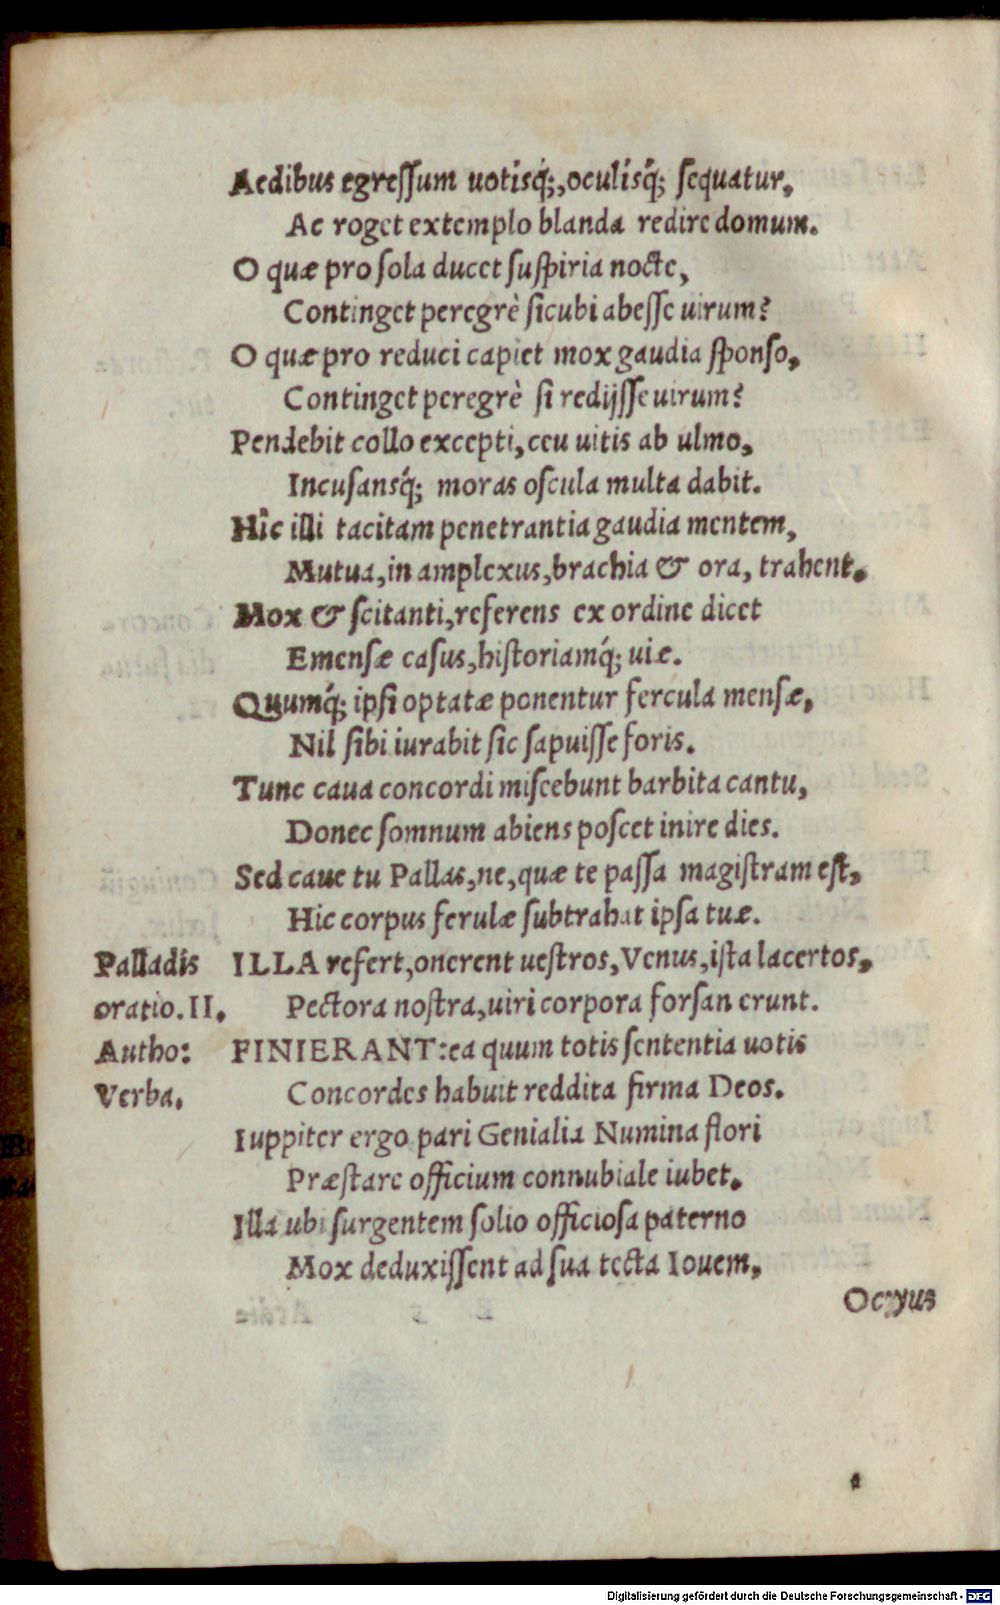 Aedibus egreſſum uotisq́;, oculisq́; ſequatur,
Ac roget extemplo blanda redire domum.
O quæ pro ſola ducet ſuſpiria nocte,
Continget peregrè ſicubi abeſſe uirum?
O quæ pro reduci capiet mox gaudia ſponſo,
Continget peregrè ſi redijſſe uirum?
Pendebit collo excepti, ceu uitis ab ulmo,
Incuſansq́; moras oſcula multa dabit.
Hîc illi tacitam penetrantia gaudia mentem,
Mutua, in amplexus, brachia & ora, trahent.
Mox & ſcitanti, referens ex ordine dicet
Emenſæ caſus, hiſtoriamq́; uiæ.
Quumq́; ipſi optatæ ponentur fercula menſæ,
Nil ſibi iurabit ſic ſapuiſſe foris.
Tunc caua concordi miſcebunt barbita cantu,
Donec ſomnum abiens poſcet inire dies.
Sed caue tu Pallas, ne, quæ te paſſa magiſtram eſt,
Hic corpus ferulæ ſubtrahat ipſa tuæ.
Palladis ILLA refert, onerent ueſtros, Venus, iſta lacertos,
oratio. II. Pectora noſtra, uiri corpora forſan erunt.
Autho: FINIERANT: ea quum totis ſententia uotis
Verba. Concordes habuit reddita firma Deos.
Iuppiter ergo pari Genialia Numina flori
Præſtare officium connubiale iubet.
Illa ubi ſurgentem ſolio officioſa paterno
Mox deduxiſſent ad ſua tecta Iouem,
Ocyus
Digitalisierung gefördert durch die Deutsche Forschungsgemeinschaft - DFG